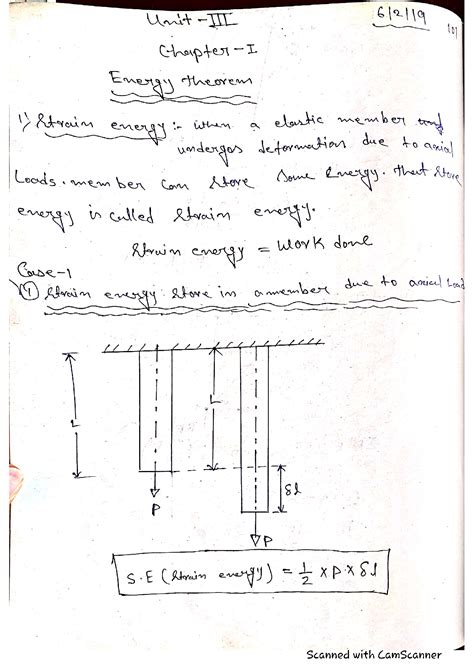 Unit-III
6/2/19
Chapter-I
Energy theorem
1) Strain energy:- When a elastic member
undergos deformation due to axial
Loads. member can store some energy. that store
energy is called strain energy.
Strain energy = Work done
Case-1
Strain energy store in a member due to axial Load
L
L
P
δl
P
S.E (Strain energy) = 1/2 × P × δl
Scanned with CamScanner